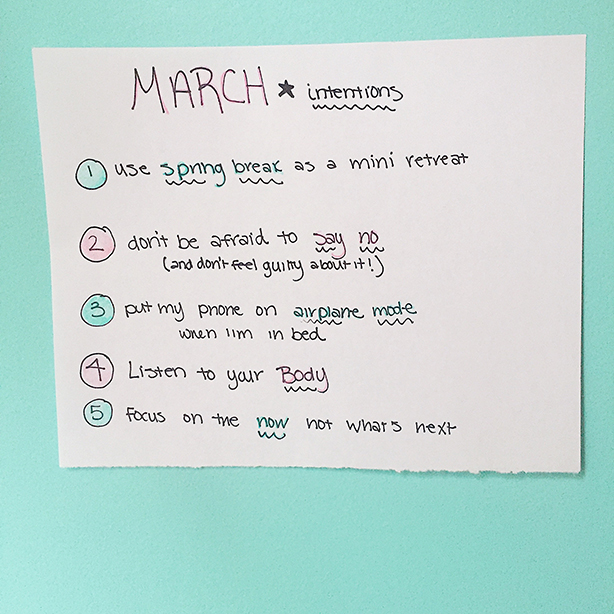 MARCH ★ intentions
1 use spring break as a mini retreat
2 don't be afraid to say no
(and don't feel guilty about it!)
3 put my phone on airplane mode
when I'm in bed
4 Listen to your Body
5 Focus on the now not what's next